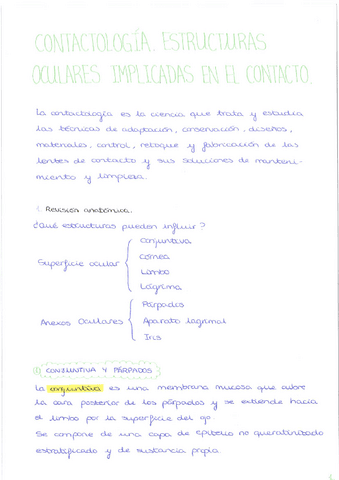 CONTACTOLOGÍA. ESTRUCTURAS
OCULARES IMPLICADAS EN EL CONTACTO.
La contactología es la ciencia que trata y estudia
las técnicas de adaptación, conservación, diseños,
materiales, control, retoque y fabricación de las
lentes de contacto y sus soluciones de manteni-
miento y limpieza.
1. Revisión anatómica.
¿Qué estructuras pueden influir?
Superficie ocular
Conjuntiva
Córnea
Limbo
Lágrima
Anexos Oculares
Párpados
Aparato lagrimal
Iris
① CONJUNTIVA Y PÁRPADOS
La conjuntiva es una membrana mucosa que cubre
la cara posterior de los párpados y se extiende hacia
el limbo por la superficie del ojo.
Se compone de una capa de epitelio no queratinizado
estratificado y de sustancia propia.